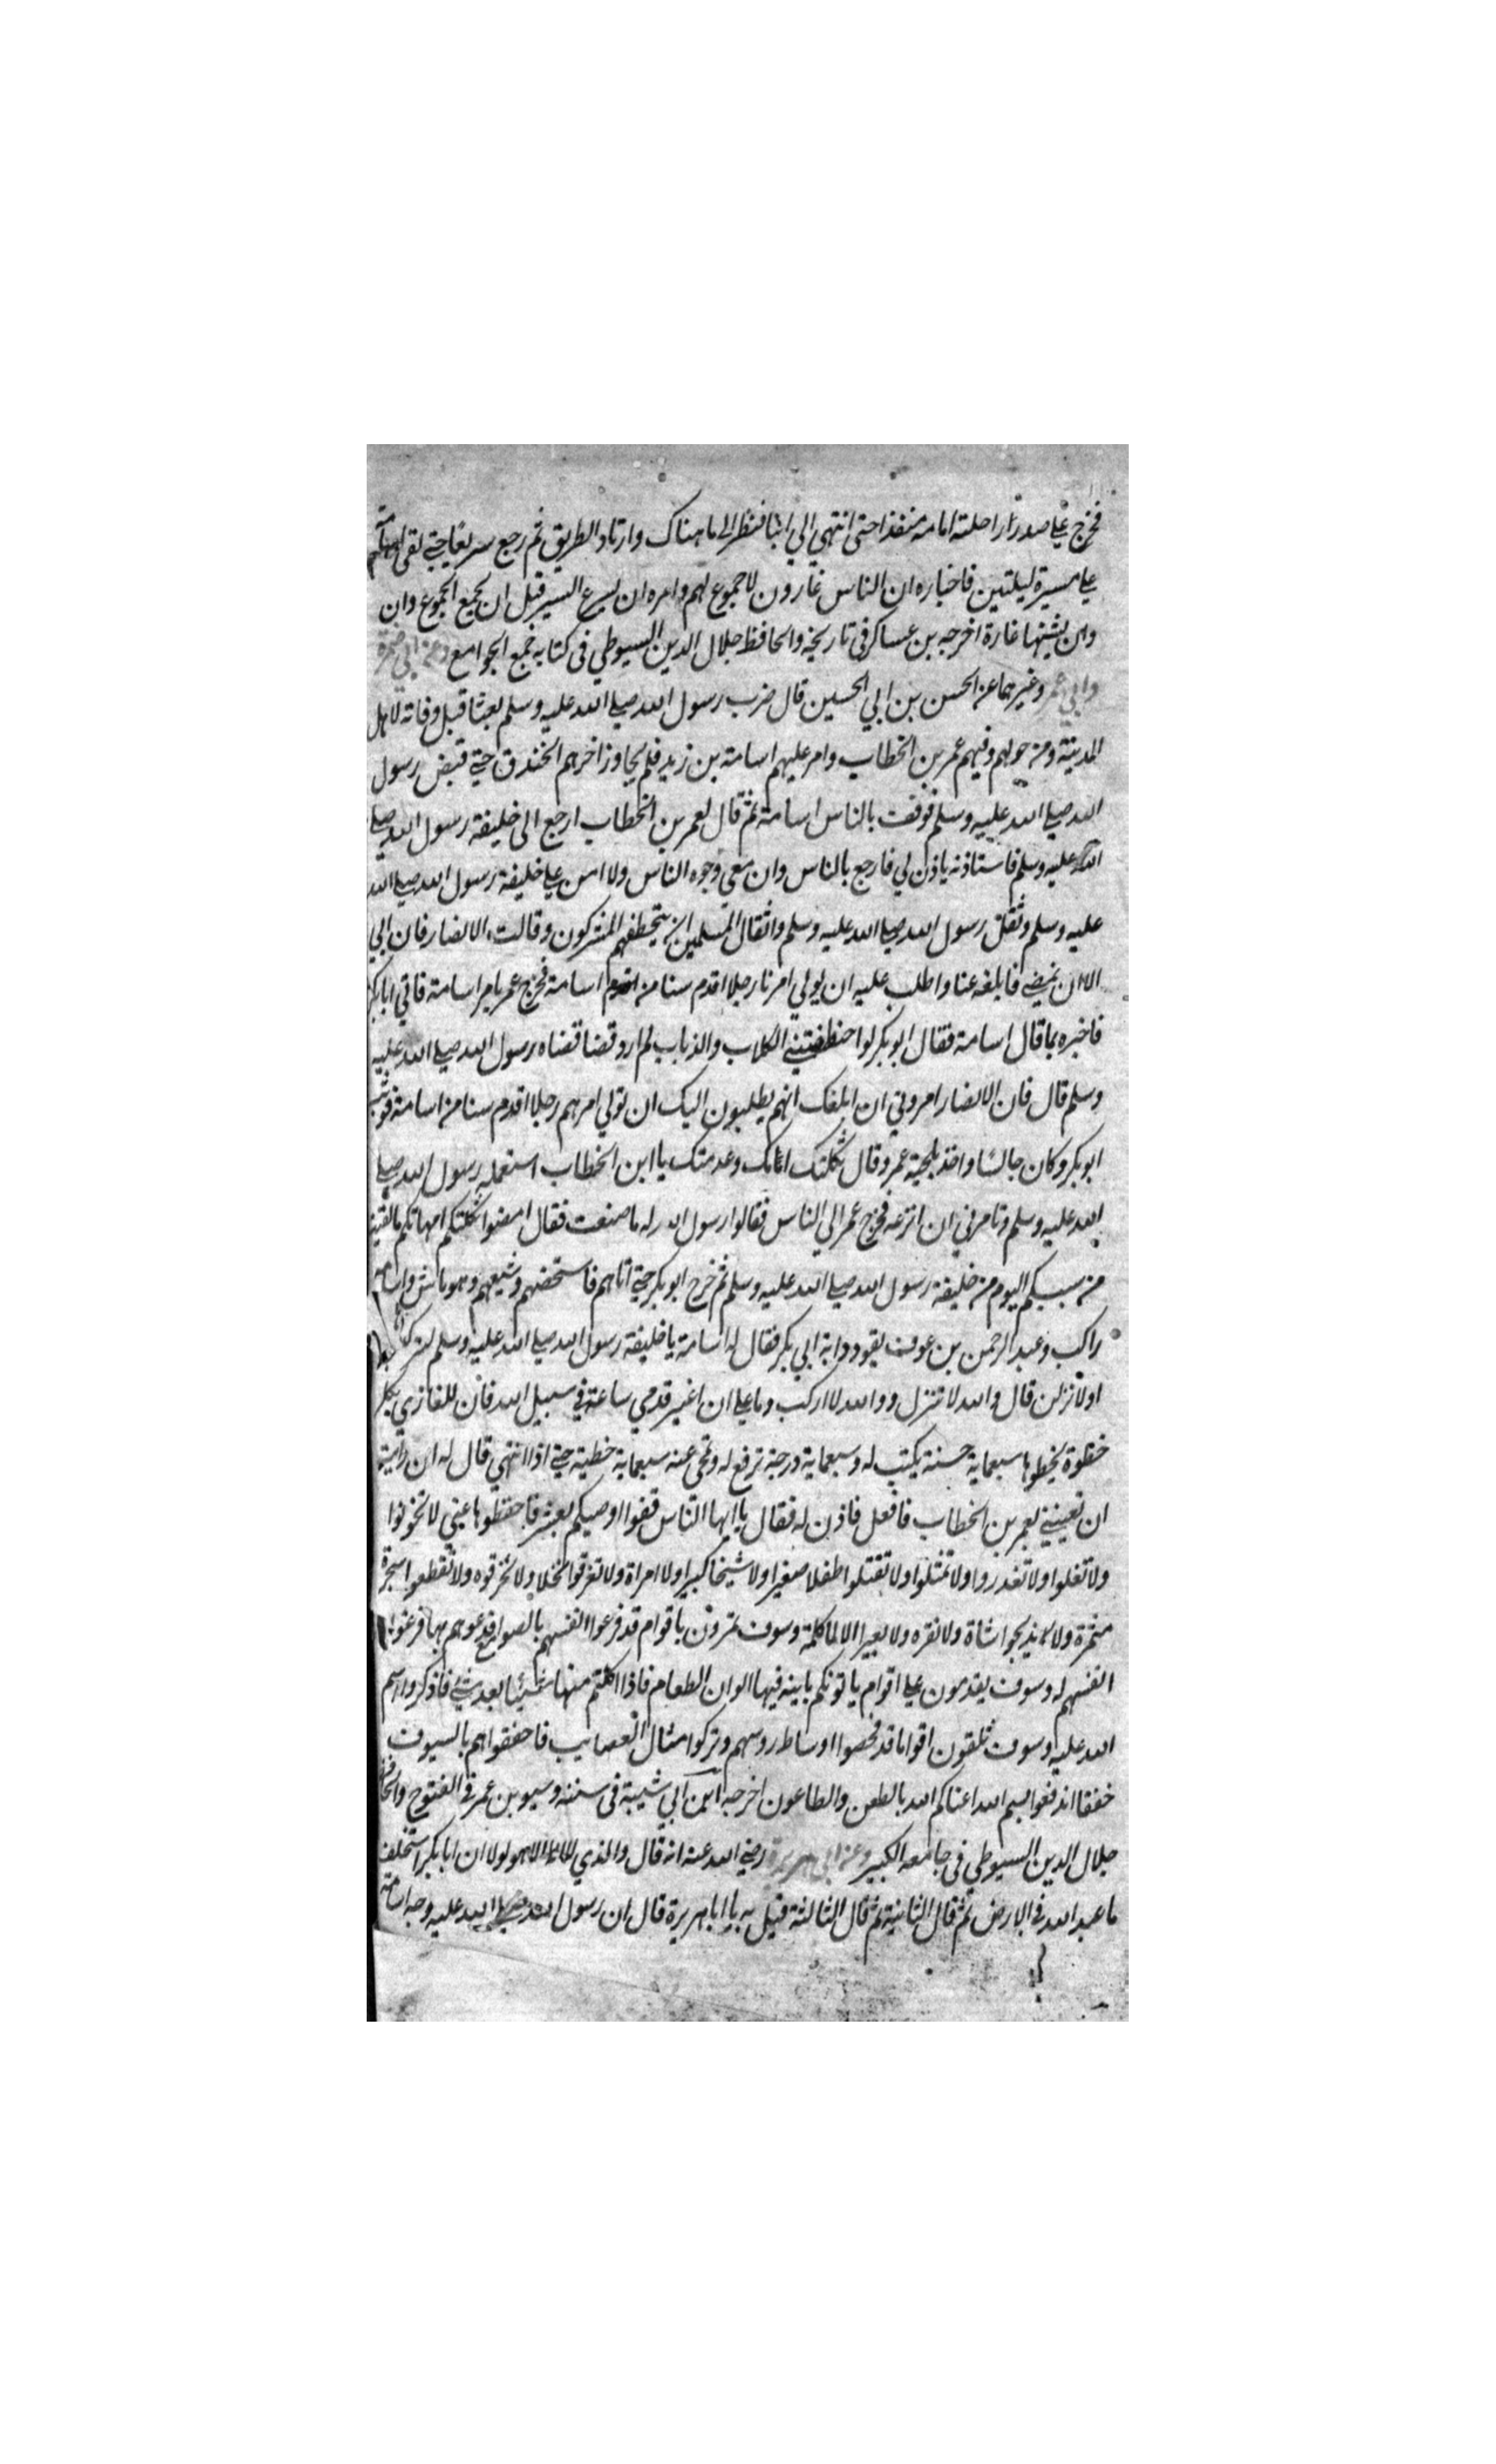 فخرج علي صدر راحلته امامه منفذا حتى انتهي الي ابنا فنظر الى ما هناك وارتاد الطريق ثم رجع سريعا حتى لقى اسامة
علي مسيرة ليلتين فاخباره ان الناس غارون لا جموع لهم وامره ان يسرع السير قبل ان يجمع الجموع وان
وان يشنها غارة اخرجه بن عساكر في تاريخه والحافظ جلال الدين السيوطي في كتابه جمع الجوامع وعن ابي
وابي عمر وغيرهما عن الحسن بن ابي الحسين قال ضرب رسول الله صلي الله عليه وسلم بعثا قبل وفاته لاهل
المدينة ومن حولهم وفيهم عمر بن الخطاب وامر عليهم اسامة بن زيد فلم يجاوز اخرهم الخندق حتى قبض رسول
الله صلي الله عليه وسلم فوقف بالناس اسامة ثم قال لعمر بن الخطاب ارجع الى خليفة رسول الله صلي
الله عليه وسلم فاستاذنه ياذن لي فارجع بالناس وان معي وجوه الناس ولا امن علي خليفة رسول الله صلي الله
عليه وسلم وثقل رسول الله صلي الله عليه وسلم واثقال المسلمين ان يتخطفهم المشركون وقالت الانصار فان ابي
الا ان نمضي فابلغه عنا واطلب عليه ان يولي امرنا رجلا اقدم سنا من اسامة فخرج عمر بامر اسامة فاتي ابابكر
فاخبره بما قال اسامة فقال ابو بكر لوا خطفتني الكلاب والذياب لم ارد قضا قضاه رسول الله صلي الله عليه
وسلم قال فان الانصار امروني ان ابلغك انهم يطلبون اليك ان تولي امرهم رجلا اقدم سنا من اسامة فوثب
ابو بكر وكان جالسا واخذ بلحية عمر وقال ثكلتك امك وعدمتك يا ابن الخطاب استعمله رسول الله صلي
الله عليه وسلم وتامرني ان انزعه فخرج عمر الي الناس فقالوا رسول الله له ما صنعت فقال امضوا ثكلتكم امهاتكم مالقيت
من سببكم اليوم من خليفة رسول الله صلي الله عليه وسلم ثم خرج ابو بكر حتى اتاهم فاستحضهم وشيعهم وهو ماش واسامه
راكب وعبد الرحمن بن عوف يقود دابة ابي بكر فقال له اسامة يا خليفة رسول الله صلي الله عليه وسلم لتركبن
او لانزلن قال والله لا تنزل ووالله لا اركب وما علي ان اغبر قدمي ساعة في سبيل الله فان للغازي بكل
خطوة يخطوها سبعماية حسنة يكتب له وسبعماية درجة ترفع له وتمحى عنه سبعماية خطية حتى اذا انتهي قال له ان رايت
ان تعينني لعمر بن الخطاب فافعل فاذن له فقال يا ايها الناس قفوا اوصيكم بعشر فاحفظوها عني لا تخونوا
ولا تغلوا ولا تغدروا ولا تمثلوا ولا تقتلوا طفلا صغيرا ولا شيخا كبيرا ولا امراة ولا تغرقوا نخلا ولا تحرقوه ولا تقطعوا شجرة
مثمرة ولا تذبحوا شاة ولا بقره ولا بعيرا الا لماكلة وسوف تمرون باقوام قد فرغوا انفسهم بالصوامع فدعوهم بما فرغوا
انفسهم له وسوف يقدمون علي اقوام ياتونكم بانيه فيها الوان الطعام فاذا اكلتم منها شيئا بعد شئ فاذكروا اسم
الله عليه وسوف تلقون اقواما قد فحصوا اوساط روسهم وتركوا مثال العصايب فاخفقواهم بالسيوف
خفقا اندفعوا بسم الله اعناكم الله بالطعن والطاعون اخرجه ابن ابي شيبة في سننه وسيو بن عمر في الفتوح والحافظ
جلال الدين السيوطي في جامعه الكبير وعن ابي هريرة رضي الله عنه انه قال والذي لا اله الا هو لولا ان ابا بكر استخلف
ما عبد الله في الارض ثم قال الثانية ثم قال الثالثة فقيل به يا ابا هريرة قال ان رسول الله صلي الله عليه وجه اسامة